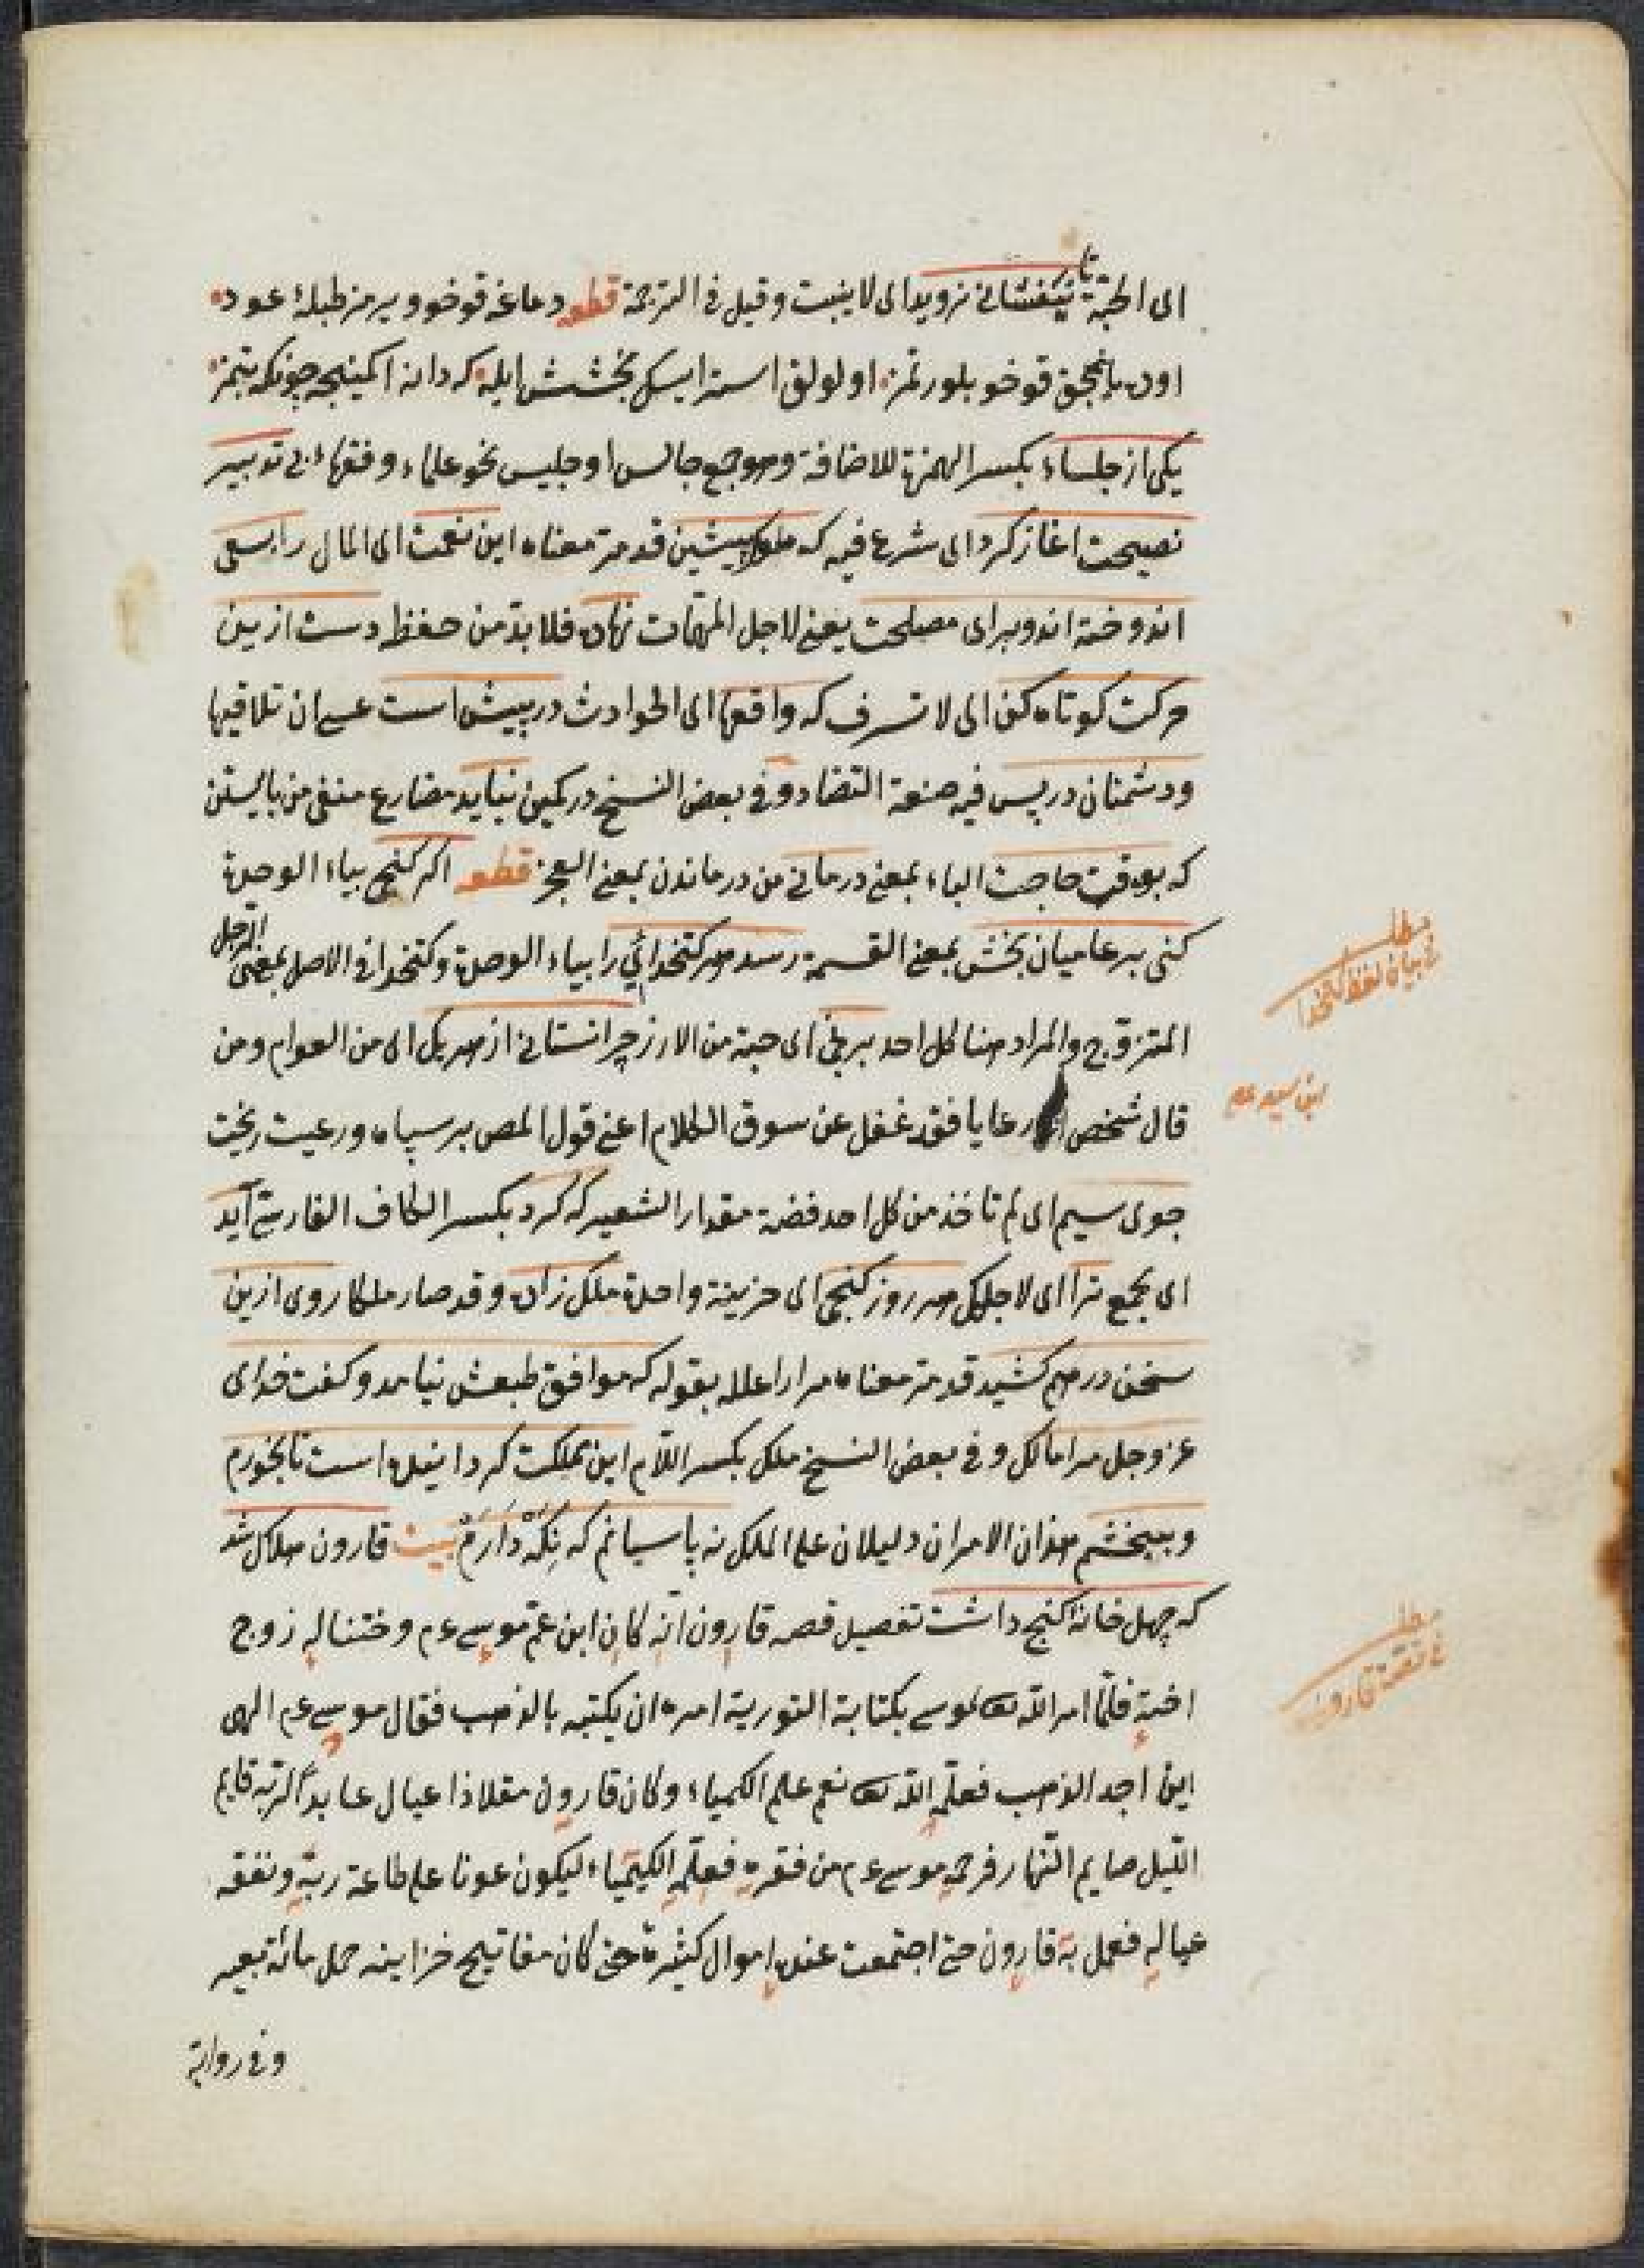 ای الحبة تا نیفشانی نروید ای لا ینبت وقیل فی الترجمة قطعه دماغه قوخو ویرمز طبلهٔ عود
اودی یانمجق قوخو بلورتمز اولولق استرایسک بخشش ایله که دانه اکمینجه چونکه بتمز
یکی از جلساء بکسر الهمزة للاضافة وهو جمع جالس او جلیس نحو علماء وفقهاء بی تدبیر
نصیحت اغاز کرد ای شرع فیه که ملوک پیشین قد مر معناه این نعمت ای المال را بسعی
اندوخته اند وبرای مصلحت یعنی لاجل المهمات نهاده فلا بد من حفظ دست ازین
حرکت کوتاه کن ای لا تسرف که واقعها ای الحوادث در پیش است عسی ان تلاقیها
ودشمنان در پس فیه صنعة التضاد وفی بعض النسخ در کمین نباید مضارع منفی من بایستن
که بوقت حاجت الباء بمعنی فی درمانی من درماندن بمعنی العجز قطعه اکر کنجی بیاء الوحدة
کنی بر عامیان بخش بمعنی القسمة رسد هر کتخدائی را بیاء الوحدة وکتخدا فی الاصل بمعنی الرجل
المتزوج والمراد هنا کل احد برنجی ای حبة من الارز چرا نستانی از هر یک ای من العوام ومن
قال شخص رعایا فقد غفل عن سوق الکلام اعنی قول المص بر سپاه ورعیت ریخت
جوی سیم ای لم تاخذ من کل احد فضة مقدار الشعیر که کرد بکسر الکاف الفارسیة آید
ای یجمع ترا ای لاجلک هر روز کنجی ای خزینة واحدة ملک زاده وقد صار ملکا روی ازین
سخن درهم کشید قد مر معناه مرارا علله بقوله که موافق طبعش نیامد وکفت خدای
عز وجل مرا مالک وفی بعض النسخ ملک بکسر اللام این مملکت کردانیده است تا بخورم
وببخشم هذان الامران دلیلان علی الملک نه پاسبانم که نکه دارم بیت قارون هلاک شد
که چهل خانه کنج داشت تفصیل قصه قارون انه کان ابن عم موسی عم وختنا له زوج
اخته فلما امر الله تعالی موسی بکتابة التوریة امره ان یکتبه بالذهب فقال موسی عم الهی
این اجد الذهب فعلمه الله تعالی نعم علم الکمیاء وکان قارون مقلا ذا عیال عابدا لربه قایم
اللیل صایم النهار فرحمه موسی عم من فقره فعلمه الکیمیاء لیکون عونا علی طاعة ربه ونفقه
عیاله فعمل به قارون حتی اجتمعت عنده اموال کثیرة حتی کان مفاتیح خزاینه حمل مائة بعیر
وفی روایة
مطلب
فی بیان لفظ کتخدا
ابن سید علی
مطلب
فی قصة قارون